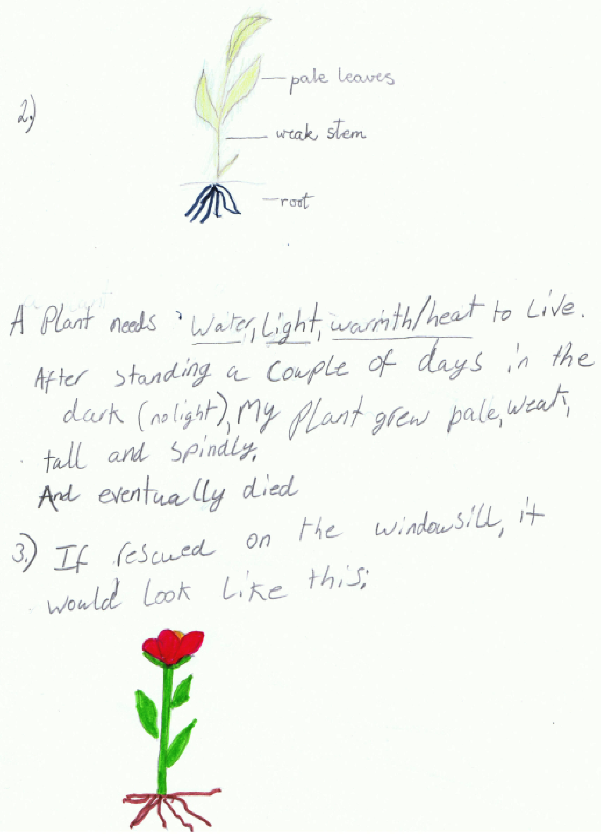 2.)
pale leaves
weak stem
root
A Plant needs : Water, Light, warmth/heat to Live.
After standing a couple of days in the
dark (no light), My plant grew pale, weak,
tall and spindly,
And eventually died
3.) If rescued on the windowsill, it
would look like this: